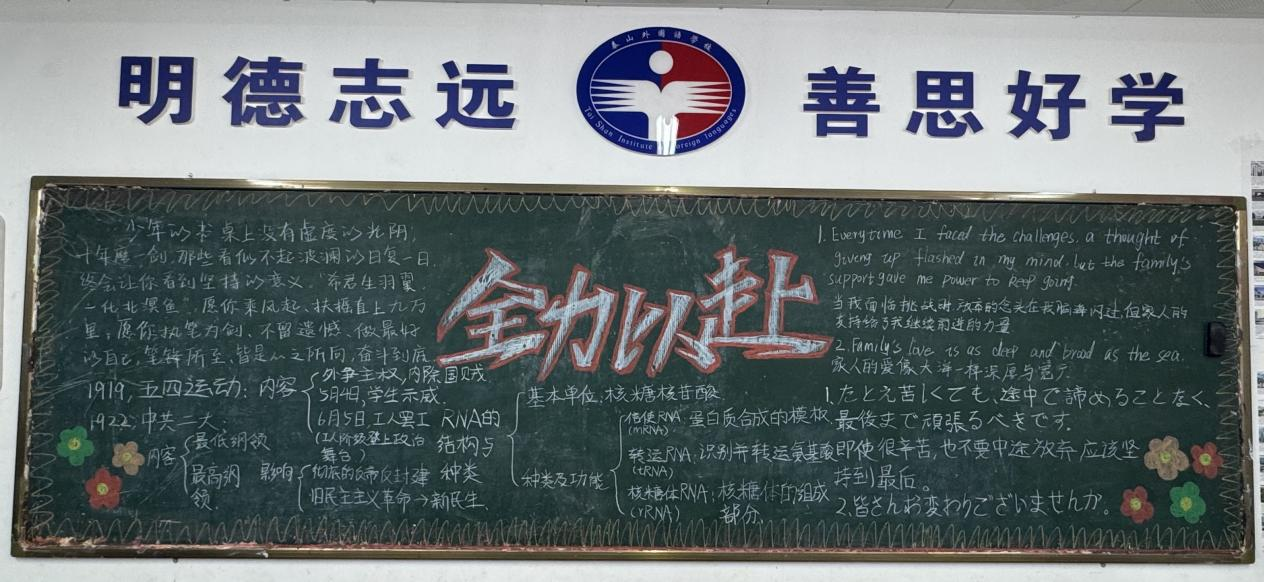 明德志远
泰山外国语学校
Tai Shan Institute Foreign languages
善思好学
少年的书桌上没有虚度的光阴,
十年磨一剑,那些看似不起波澜的日复一日,
终会让你看到坚持的意义。"希君生羽翼
一化北溟鱼"。愿你乘风起,扶摇直上九万
里,愿你执笔为剑,不留遗憾,做最好
的自己,笔锋所至,皆是心之所向,奋斗到底
全力以赴
1919,五四运动:内容
外争主权,内除国贼
5月4日,学生示威.
6月5日,工人罢工
(工人阶级登上政治
舞台)
1922,中共二大.
内容
最低纲领
最高纲
领.
影响
彻底的反帝反封建
旧民主主义革命→新民主.
RNA的
结构与
种类
基本单位:核糖核苷酸
种类及功能
信使RNA:蛋白质合成的模板
(mRNA)
转运RNA:识别并转运氨基酸
(tRNA)
核糖体RNA:核糖体的组成
(rRNA) 部分.
1. Everytime I faced the challenges, a thought of
giving up flashed in my mind, but the family's
support gave me power to keep going.
当我面临挑战时,放弃的念头在我脑海闪过,但家人的
支持给予我继续前进的力量
2. Family's love is as deep and broad as the sea.
家人的爱像大海一样深厚与宽广
1.たとえ苦しくても、途中で諦めることなく、
最後まで頑張るべきです。
即使很辛苦,也不要中途放弃 应该坚
持到最后。
2.皆さんお変わりございませんか。